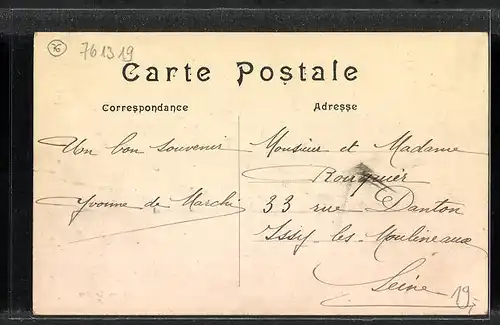 76
761319
Carte Postale
Correspondance
Adresse
Un bon souvenir
Yvonne de Marchi
Monsieur et Madame
Rouquier
33 rue Danton
Issy les Moulineaux
Seine
19,-